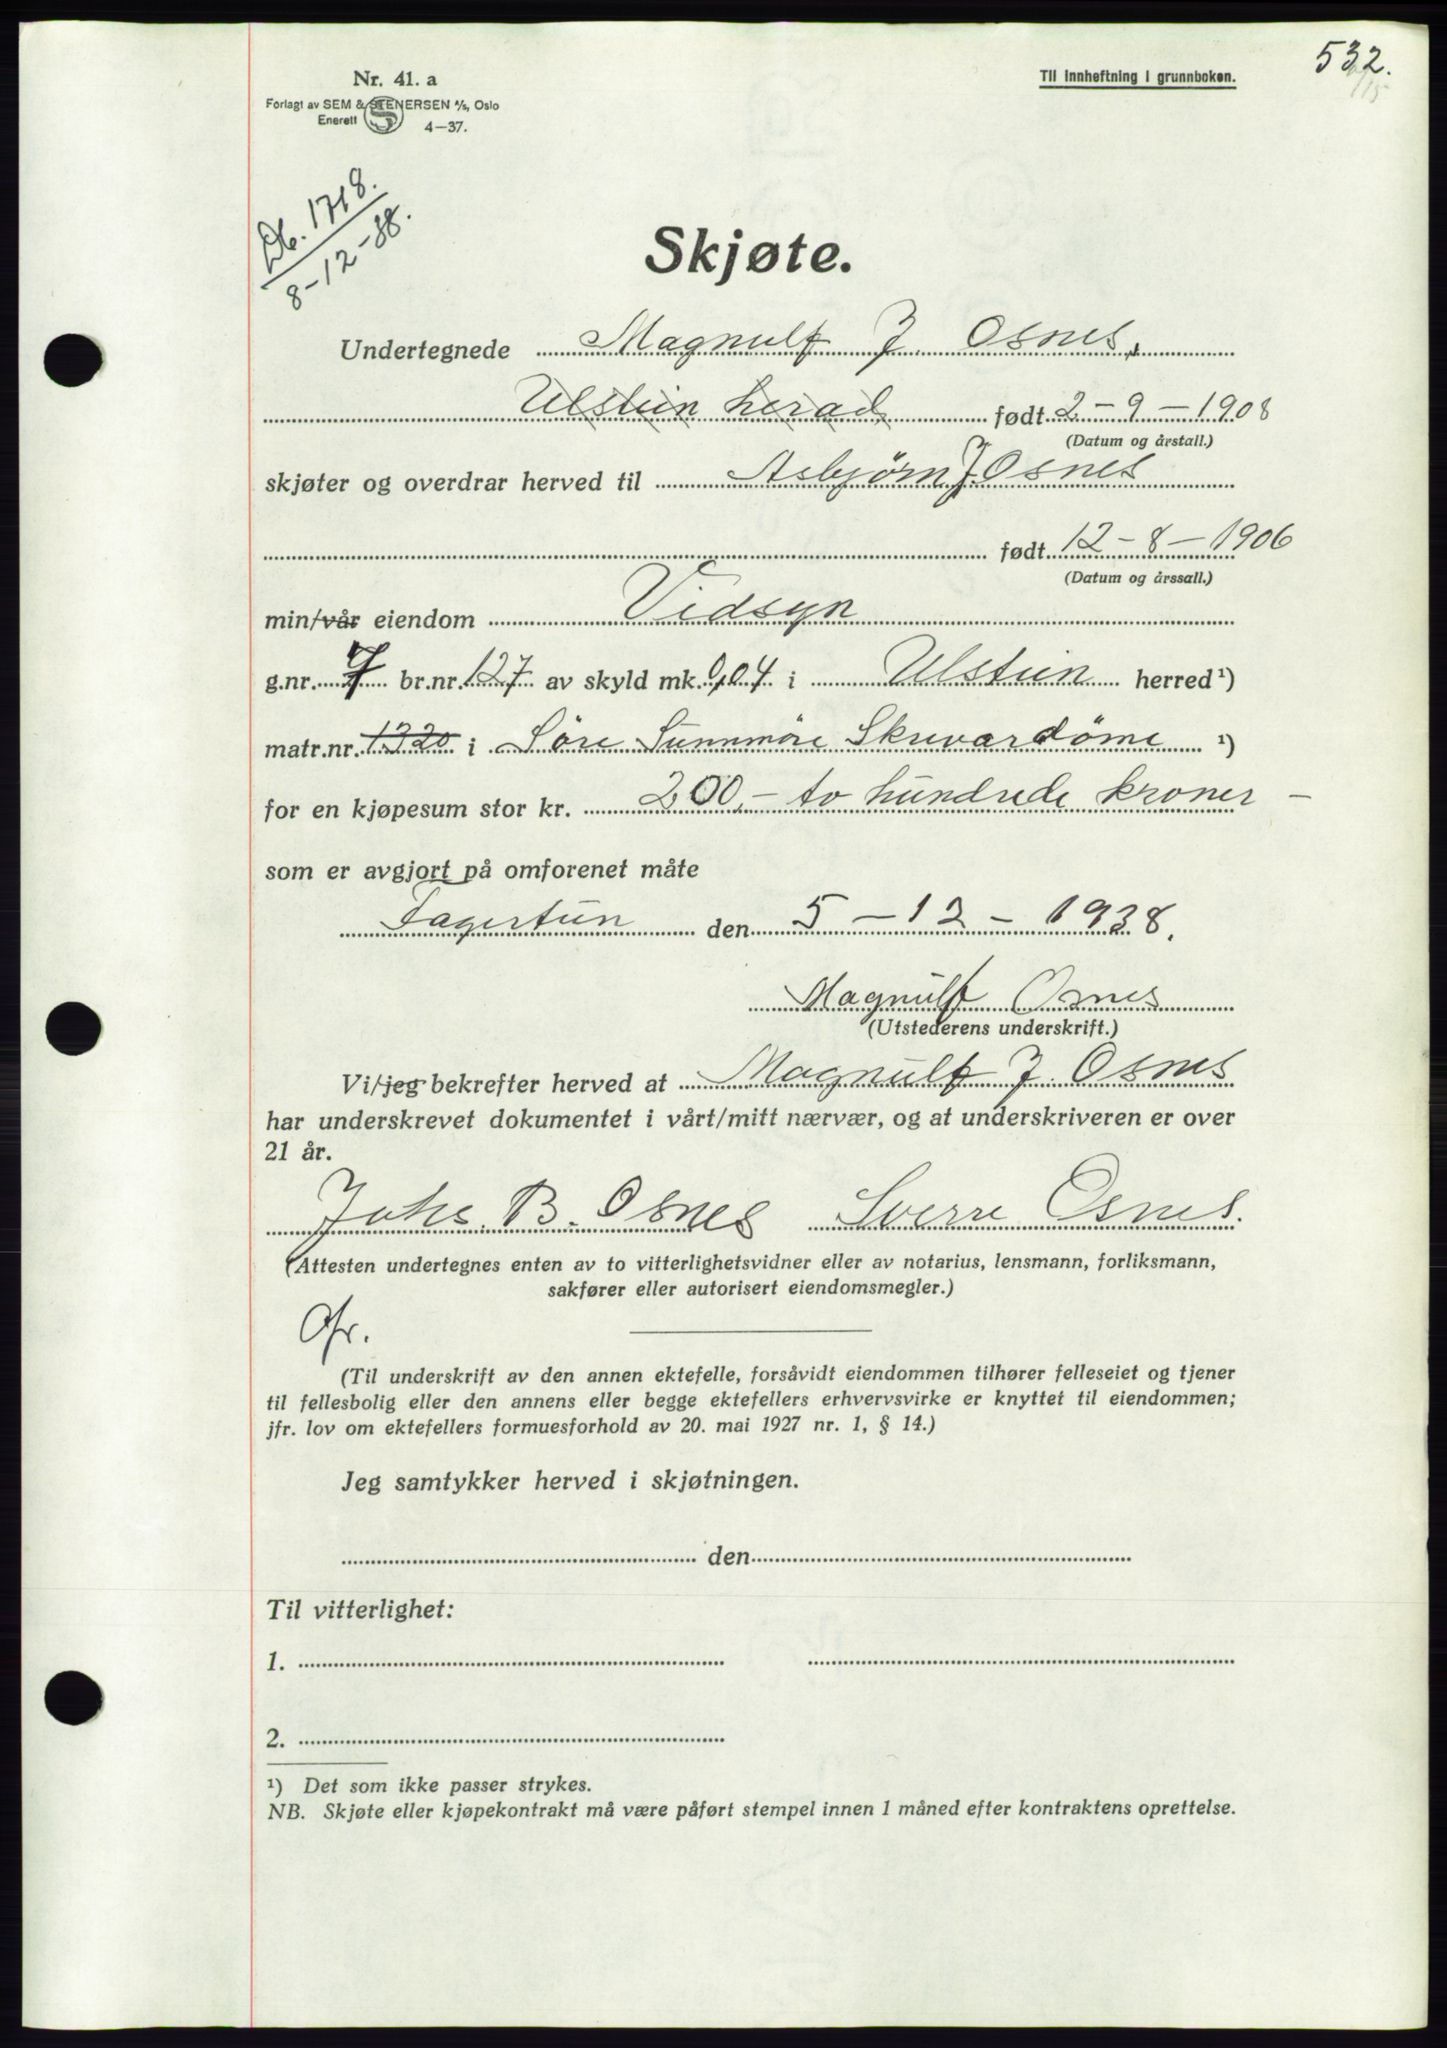 532.
Nr. 41. a
Til innheftning i grunnboken.
Forlagt av SEM & STENERSEN A/S, Oslo
Enerett 4—37.
Db. 1718.
8-12-38.
Skjøte.
Undertegnede Magnulf J. Osnes,
Ulstein herad født 2-9-1908
(Datum og årstall.)
skjøter og overdrar herved til Asbjørn J Osnes
født 12-8-1906
(Datum og årssall.)
min/vår eiendom Vidsyn
g.nr. 7 br.nr. 127 av skyld mk. 0,04 i Ulstein herred ¹)
matr.nr. 1320 i Søre Sunnmøre Skrivardøme ¹)
for en kjøpesum stor kr. 200,- to hundrede kroner -
som er avgjort på omforenet måte
Fagertun den 5-12-1938.
Magnulf Osnes
(Utstederens underskrift.)
Vi/jeg bekrefter herved at Magnulf J. Osnes
har underskrevet dokumentet i vårt/mitt nærvær, og at underskriveren er over
21 år.
Johs. B. Osnes Sverre Osnes.
(Attesten undertegnes enten av to vitterlighetsvidner eller av notarius, lensmann, forliksmann,
sakfører eller autorisert eiendomsmegler.)
(Til underskrift av den annen ektefelle, forsåvidt eiendommen tilhører felleseiet og tjener
til fellesbolig eller den annens eller begge ektefellers erhvervsvirke er knyttet til eiendommen;
jfr. lov om ektefellers formuesforhold av 20. mai 1927 nr. 1, § 14.)
Jeg samtykker herved i skjøtningen.
den
Til vitterlighet:
1.
2.
¹) Det som ikke passer strykes.
NB. Skjøte eller kjøpekontrakt må være påført stempel innen 1 måned efter kontraktens oprettelse.